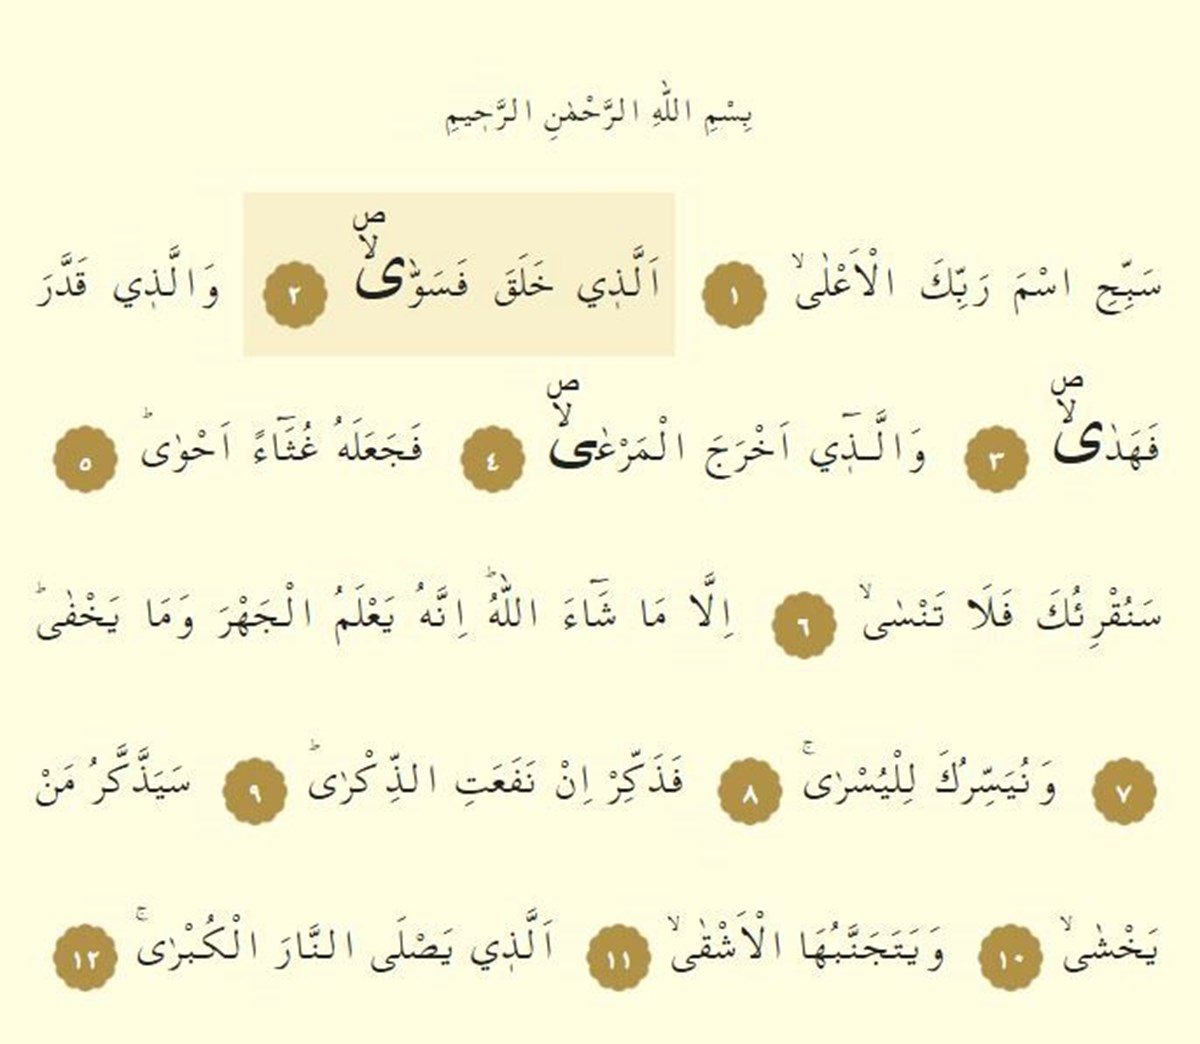 بِسْمِ اللّٰهِ الرَّحْمٰنِ الرَّح۪يمِ
سَبِّحِ اسْمَ رَبِّكَ الْاَعْلٰىۙ ١ اَلَّذ۪ي خَلَقَ فَسَوّٰىۙۖ ٢ وَالَّذ۪ي قَدَّرَ
فَهَدٰىۙۖ ٣ وَالَّـذ۪ٓي اَخْرَجَ الْمَرْعٰىۙۖ ٤ فَجَعَلَهُ غُثَٓاءً اَحْوٰىۜ ٥
سَنُقْرِئُكَ فَلَا تَنْسٰىۙ ٦ اِلَّا مَا شَٓاءَ اللّٰهُۜ اِنَّهُ يَعْلَمُ الْجَهْرَ وَمَا يَخْفٰىۜ
٧ وَنُيَسِّرُكَ لِلْيُسْرٰىۚ ٨ فَذَكِّرْ اِنْ نَفَعَتِ الذِّكْرٰىۜ ٩ سَيَذَّكَّرُ مَنْ
يَخْشٰىۙ ١٠ وَيَتَجَنَّبُهَا الْاَشْقٰىۙ ١١ اَلَّذ۪ي يَصْلَى النَّارَ الْكُبْرٰىۚ ١٢